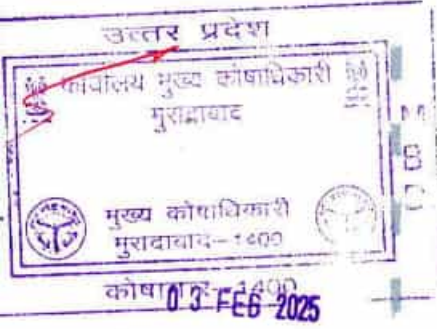 उत्तर प्रदेश
कार्यालय मुख्य कोषाधिकारी
मुरादाबाद
मुख्य कोषाधिकारी
मुरादाबाद-1400
1400
03 FEB 2025